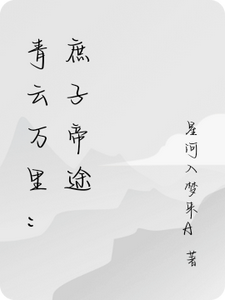 青云万里：
庶子帝途
星河入梦来A 著